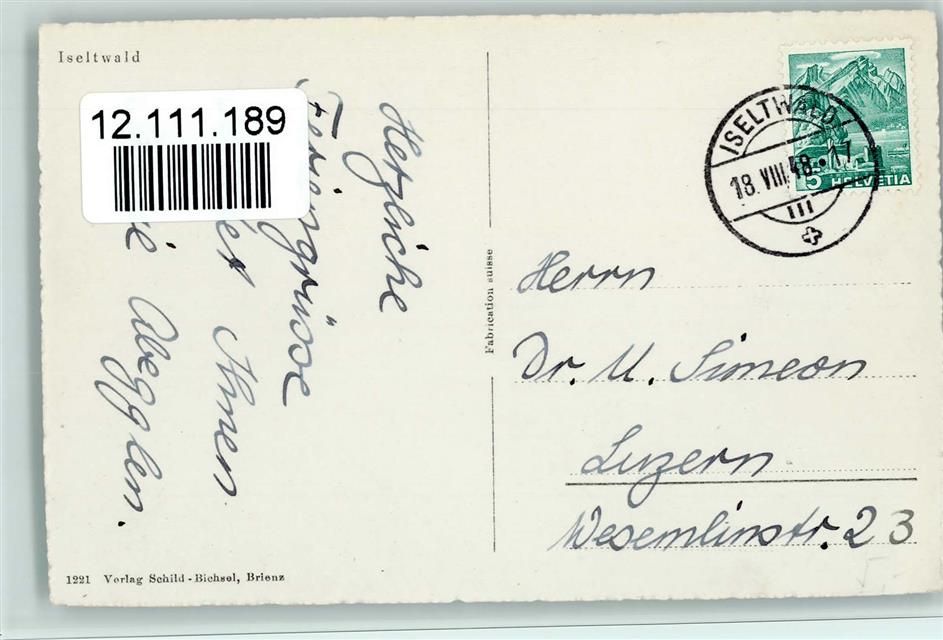 Iseltwald
12.111.189
Herzliche
Feriengrüsse
Ihnen
Abegglen.
Fabrication suisse
ISELTWALD
18.VIII.48.-17
III
5 HELVETIA
Herrn
Dr. U. Simeon
Luzern
Wesemlinstr. 23
1221 Verlag Schild-Bichsel, Brienz